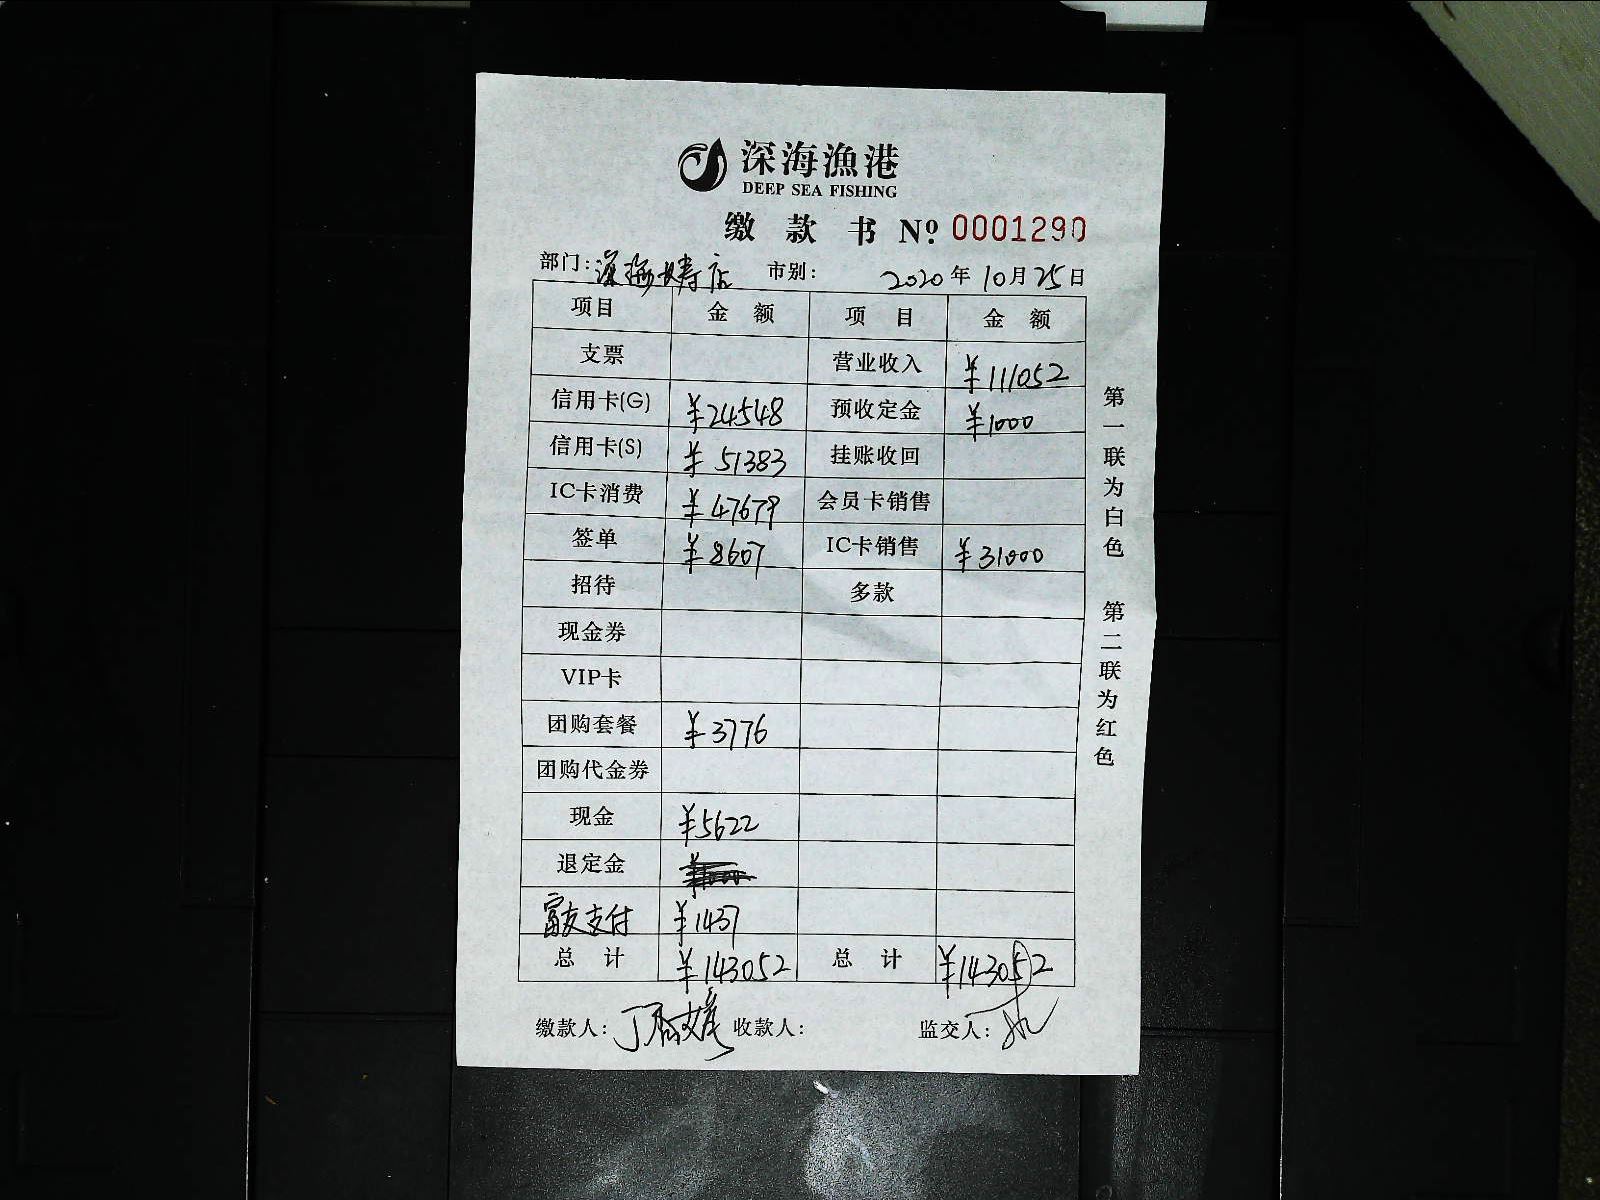 深海渔港
DEEP SEA FISHING
缴款书 Nº 0001290
部门：深海长寿店 市别： 2020年10月25日
项目 金额 项目 金额
支票 营业收入 ¥111052
信用卡(G) ¥24548 预收定金 ¥1000
信用卡(S) ¥51383 挂账收回
IC卡消费 ¥47679 会员卡销售
签单 ¥8607 IC卡销售 ¥31000
招待 多款
现金券
VIP卡
团购套餐 ¥3776
团购代金券
现金 ¥5622
退定金
富友支付 ¥1437
总计 ¥143052 总计 ¥143052
缴款人： 收款人： 监交人：
第一联为白色 第二联为红色